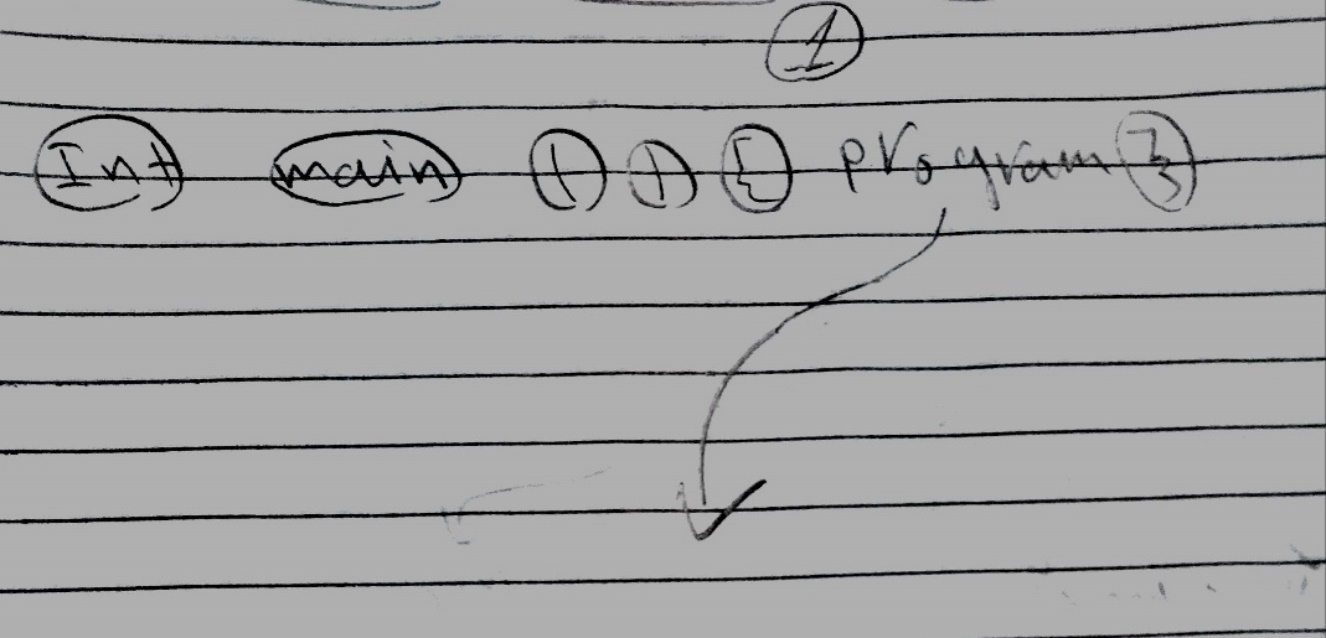 1
Int main ( ) { program }